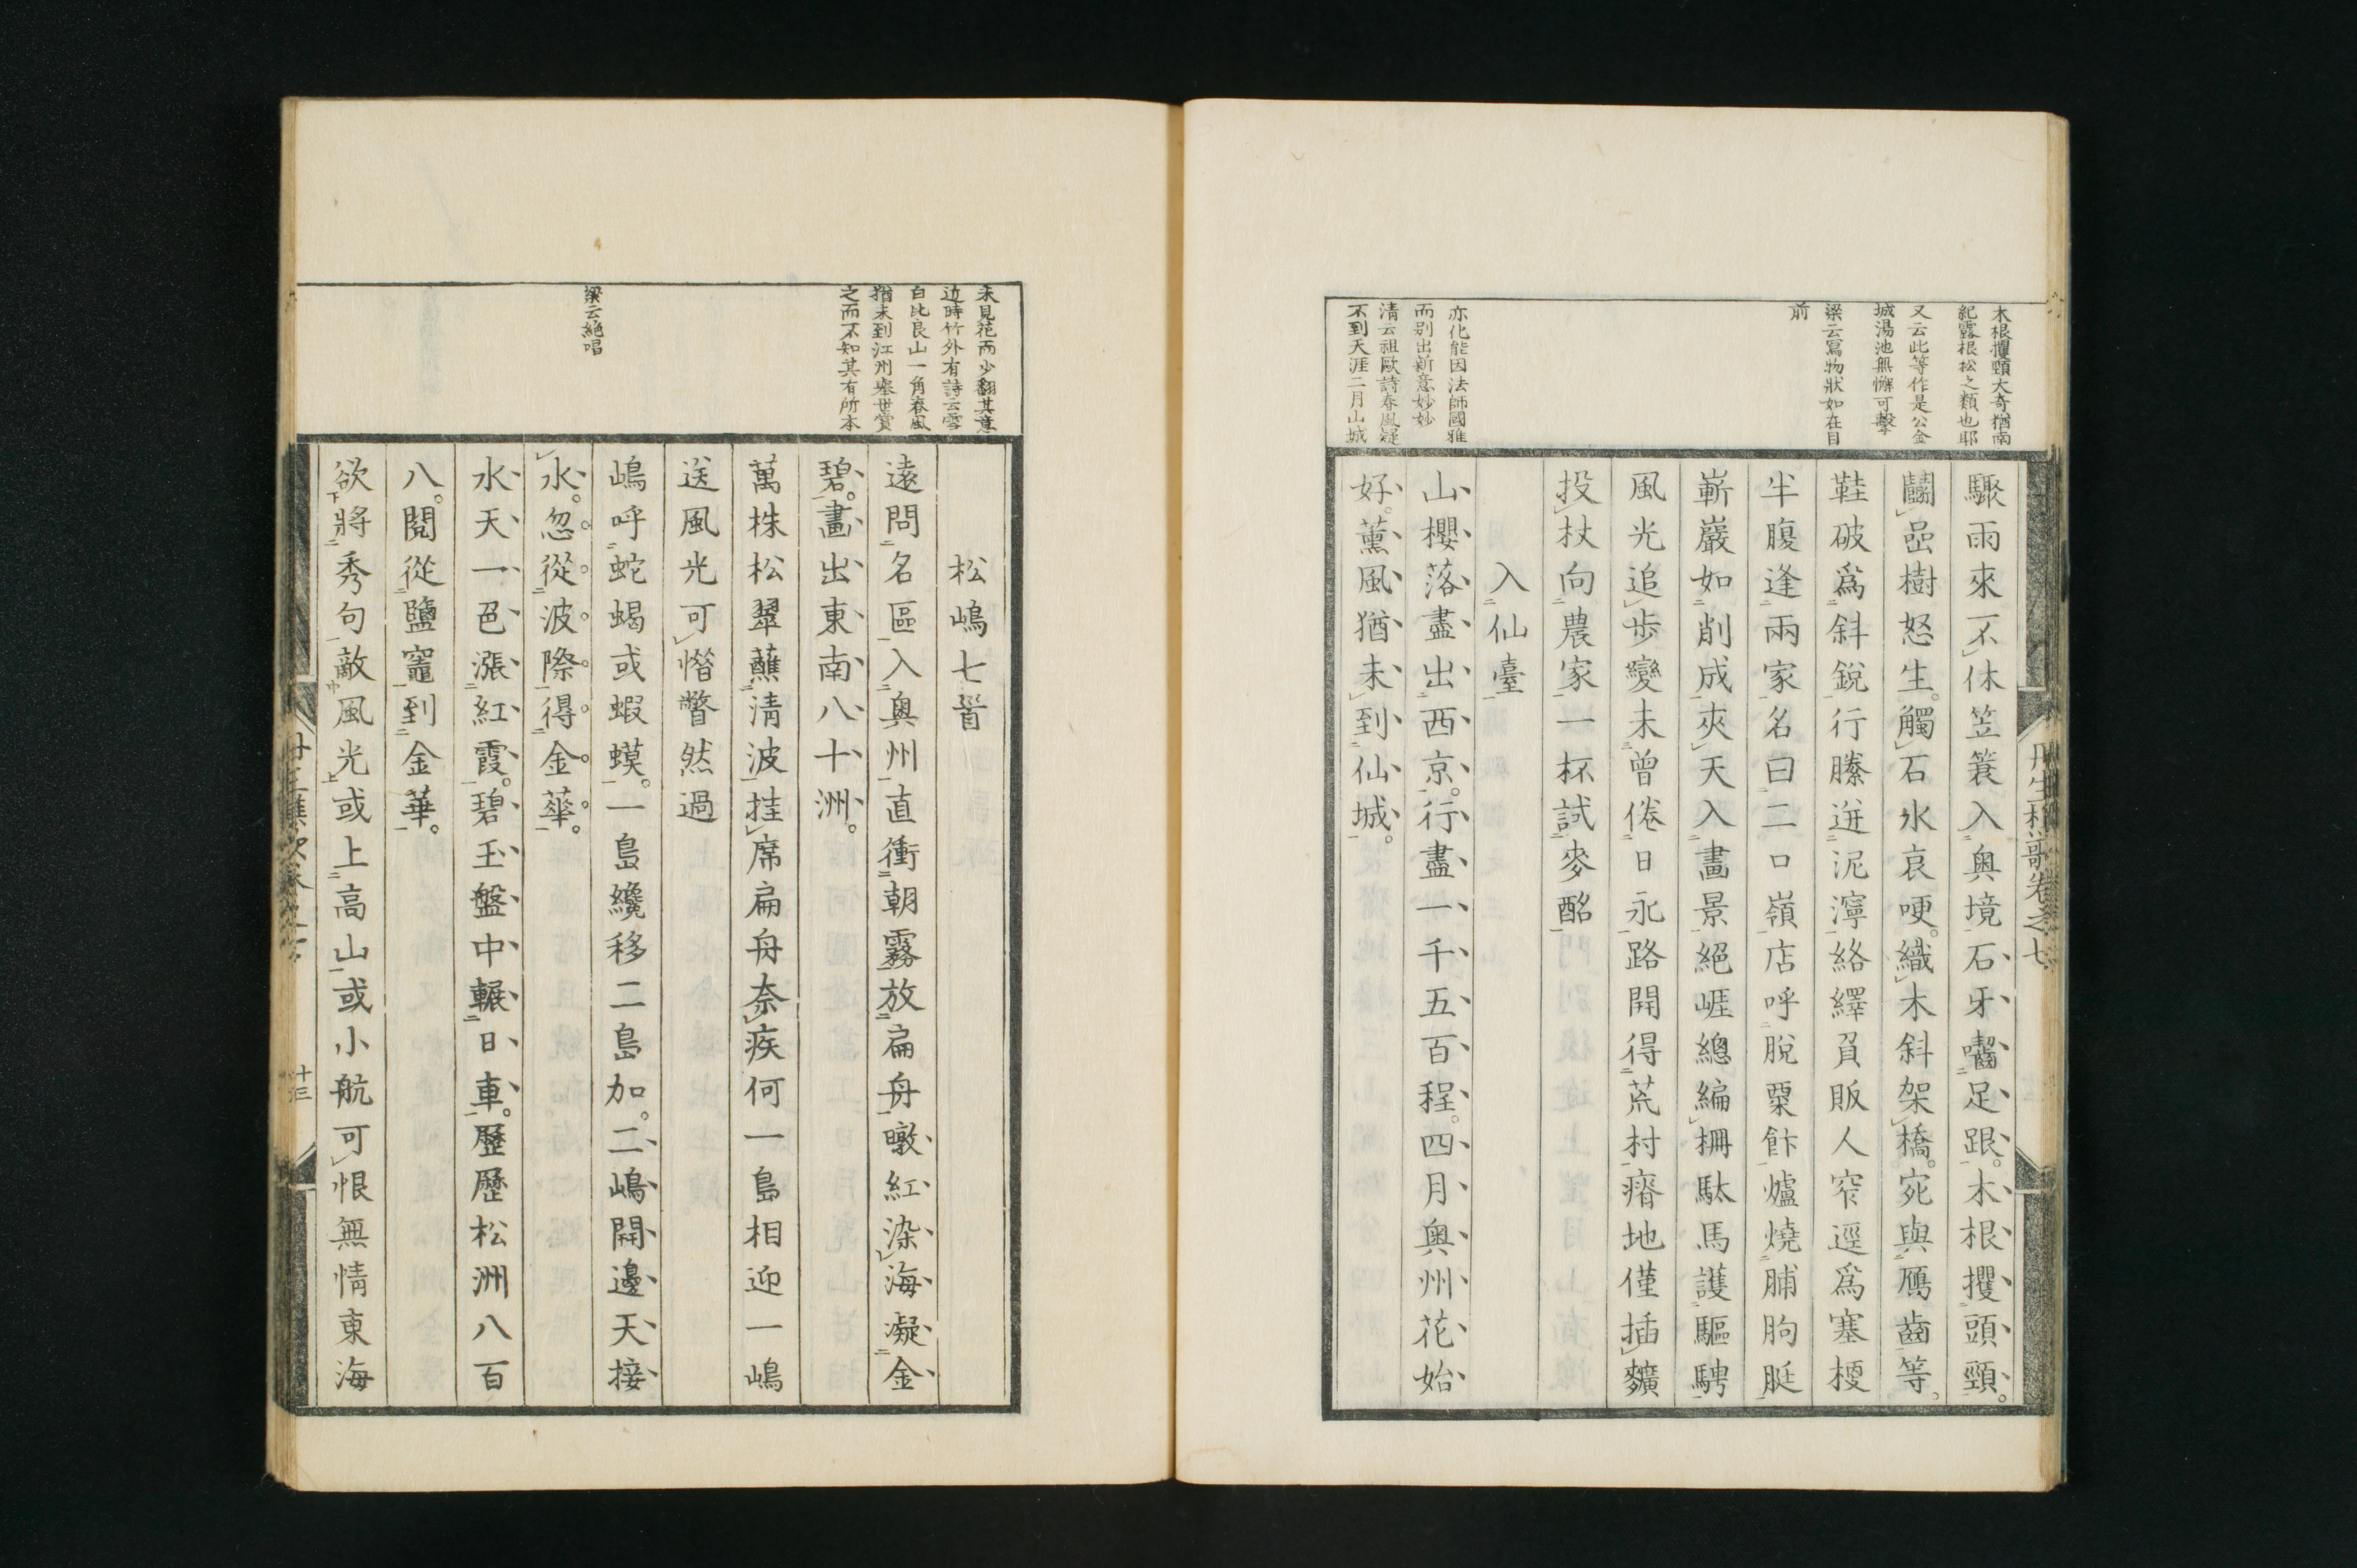 木根攫頸大奇猶南
紀露根松之類也耶
又云此等作是公金
城湯池無懈可擊
梁云寫物狀如在目
前
亦化能因法師國雅
而別出新意妙妙
清云祖歐詩春風疑
不到天涯二月山城
驟雨來不休笠簑入奧境石牙囓足跟木根攫頭頸
鬭嵒樹怒生觸石水哀哽織木斜架橋宛與鴈齒等
鞋破爲斜銳行縢迸泥濘絡繹負販人窄逕爲塞梗
半腹逢兩家名曰二口嶺店呼脫粟飰爐燒脯朐脡
嶄巖如削成夾天入畫景絕崕總編柵馱馬護驅騁
風光追步變未曾倦日永路開得荒村瘠地僅插䵃
投杖向農家一杯試麥酩
入仙臺
山櫻落盡出西京行盡一千五百程四月奧州花始
好薰風猶未到仙城
丹生樵歌卷之七
未見花而少翻其意
近時竹外有詩云雪
白比良山一角春風
猶未到江州舉世賞
之而不知其有所本
梁云絕唱
松嶋七首
遠問名區入奧州直衝朝霧放扁舟暾紅染海凝金
碧畫出東南八十洲
萬株松翠蘸淸波挂席扁舟奈疾何一島相迎一嶋
送風光可憯瞥然過
嶋呼蛇蝎或蝦蟆一島纔移二島加二嶋開邊天接
水忽從波際得金華
水天一色漲紅霞碧玉盤中輾日車歷歷松洲八百
八閱從鹽竈到金華
欲將秀句敵風光或上高山或小航可恨無情東海
十三